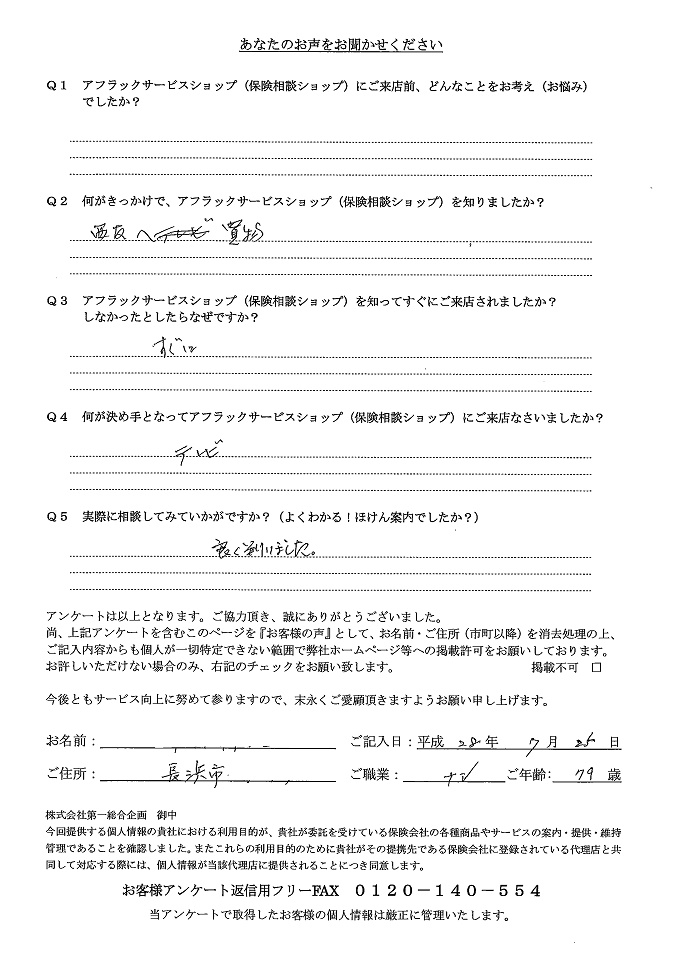 あなたのお声をお聞かせください
Q1 アフラックサービスショップ（保険相談ショップ）にご来店前、どんなことをお考え（お悩み）
でしたか？
Q2 何がきっかけで、アフラックサービスショップ（保険相談ショップ）を知りましたか？
西友へ 買物
Q3 アフラックサービスショップ（保険相談ショップ）を知ってすぐにご来店されましたか？
しなかったとしたらなぜですか？
すぐに
Q4 何が決め手となってアフラックサービスショップ（保険相談ショップ）にご来店なさいましたか？
テレビ
Q5 実際に相談してみていかがですか？（よくわかる！ほけん案内でしたか？）
良く判りました。
アンケートは以上となります。ご協力頂き、誠にありがとうございました。
尚、上記アンケートを含むこのページを『お客様の声』として、お名前・ご住所（市町以降）を消去処理の上、
ご記入内容からも個人が一切特定できない範囲で弊社ホームページ等への掲載許可をお願いしております。
お許しいただけない場合のみ、右記のチェックをお願い致します。 掲載不可 □
今後ともサービス向上に努めて参りますので、末永くご愛顧頂きますようお願い申し上げます。
お名前： ご記入日：平成 28年 7月 25日
ご住所： 長浜市 ご職業： ナシ ご年齢： 79歳
株式会社第一総合企画 御中
今回提供する個人情報の貴社における利用目的が、貴社が委託を受けている保険会社の各種商品やサービスの案内・提供・維持
管理であることを確認しました。またこれらの利用目的のために貴社がその提携先である保険会社に登録されている代理店と共
同して対応する際には、個人情報が当該代理店に提供されることにつき同意します。
お客様アンケート返信用フリーFAX 0120－140－554
当アンケートで取得したお客様の個人情報は厳正に管理いたします。